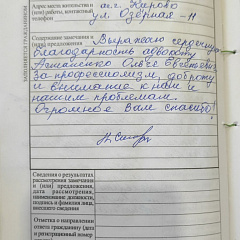 Адрес места жительства и
(или) работы, контактный
телефон
аг. Жирово
ул. Озёрная - 11
ЗАПОЛНЯЕТСЯ ГРАЖДАНИНОМ
Содержание замечания и
(или) предложения
Выражаю сердечную
благодарность адвокату
Асташенко Ольге Евгеньевне
За профессионализм, доброту
и внимание к нам и
нашим проблемам.
Огромное Вам спасибо!
Сведения о результатах
рассмотрения замечания
и (или) предложения,
дата рассмотрения,
наименование должности,
подпись и фамилия лица,
внёсшего сведения
Отметка о направлении
ответа гражданину (дата
и регистрационный номер